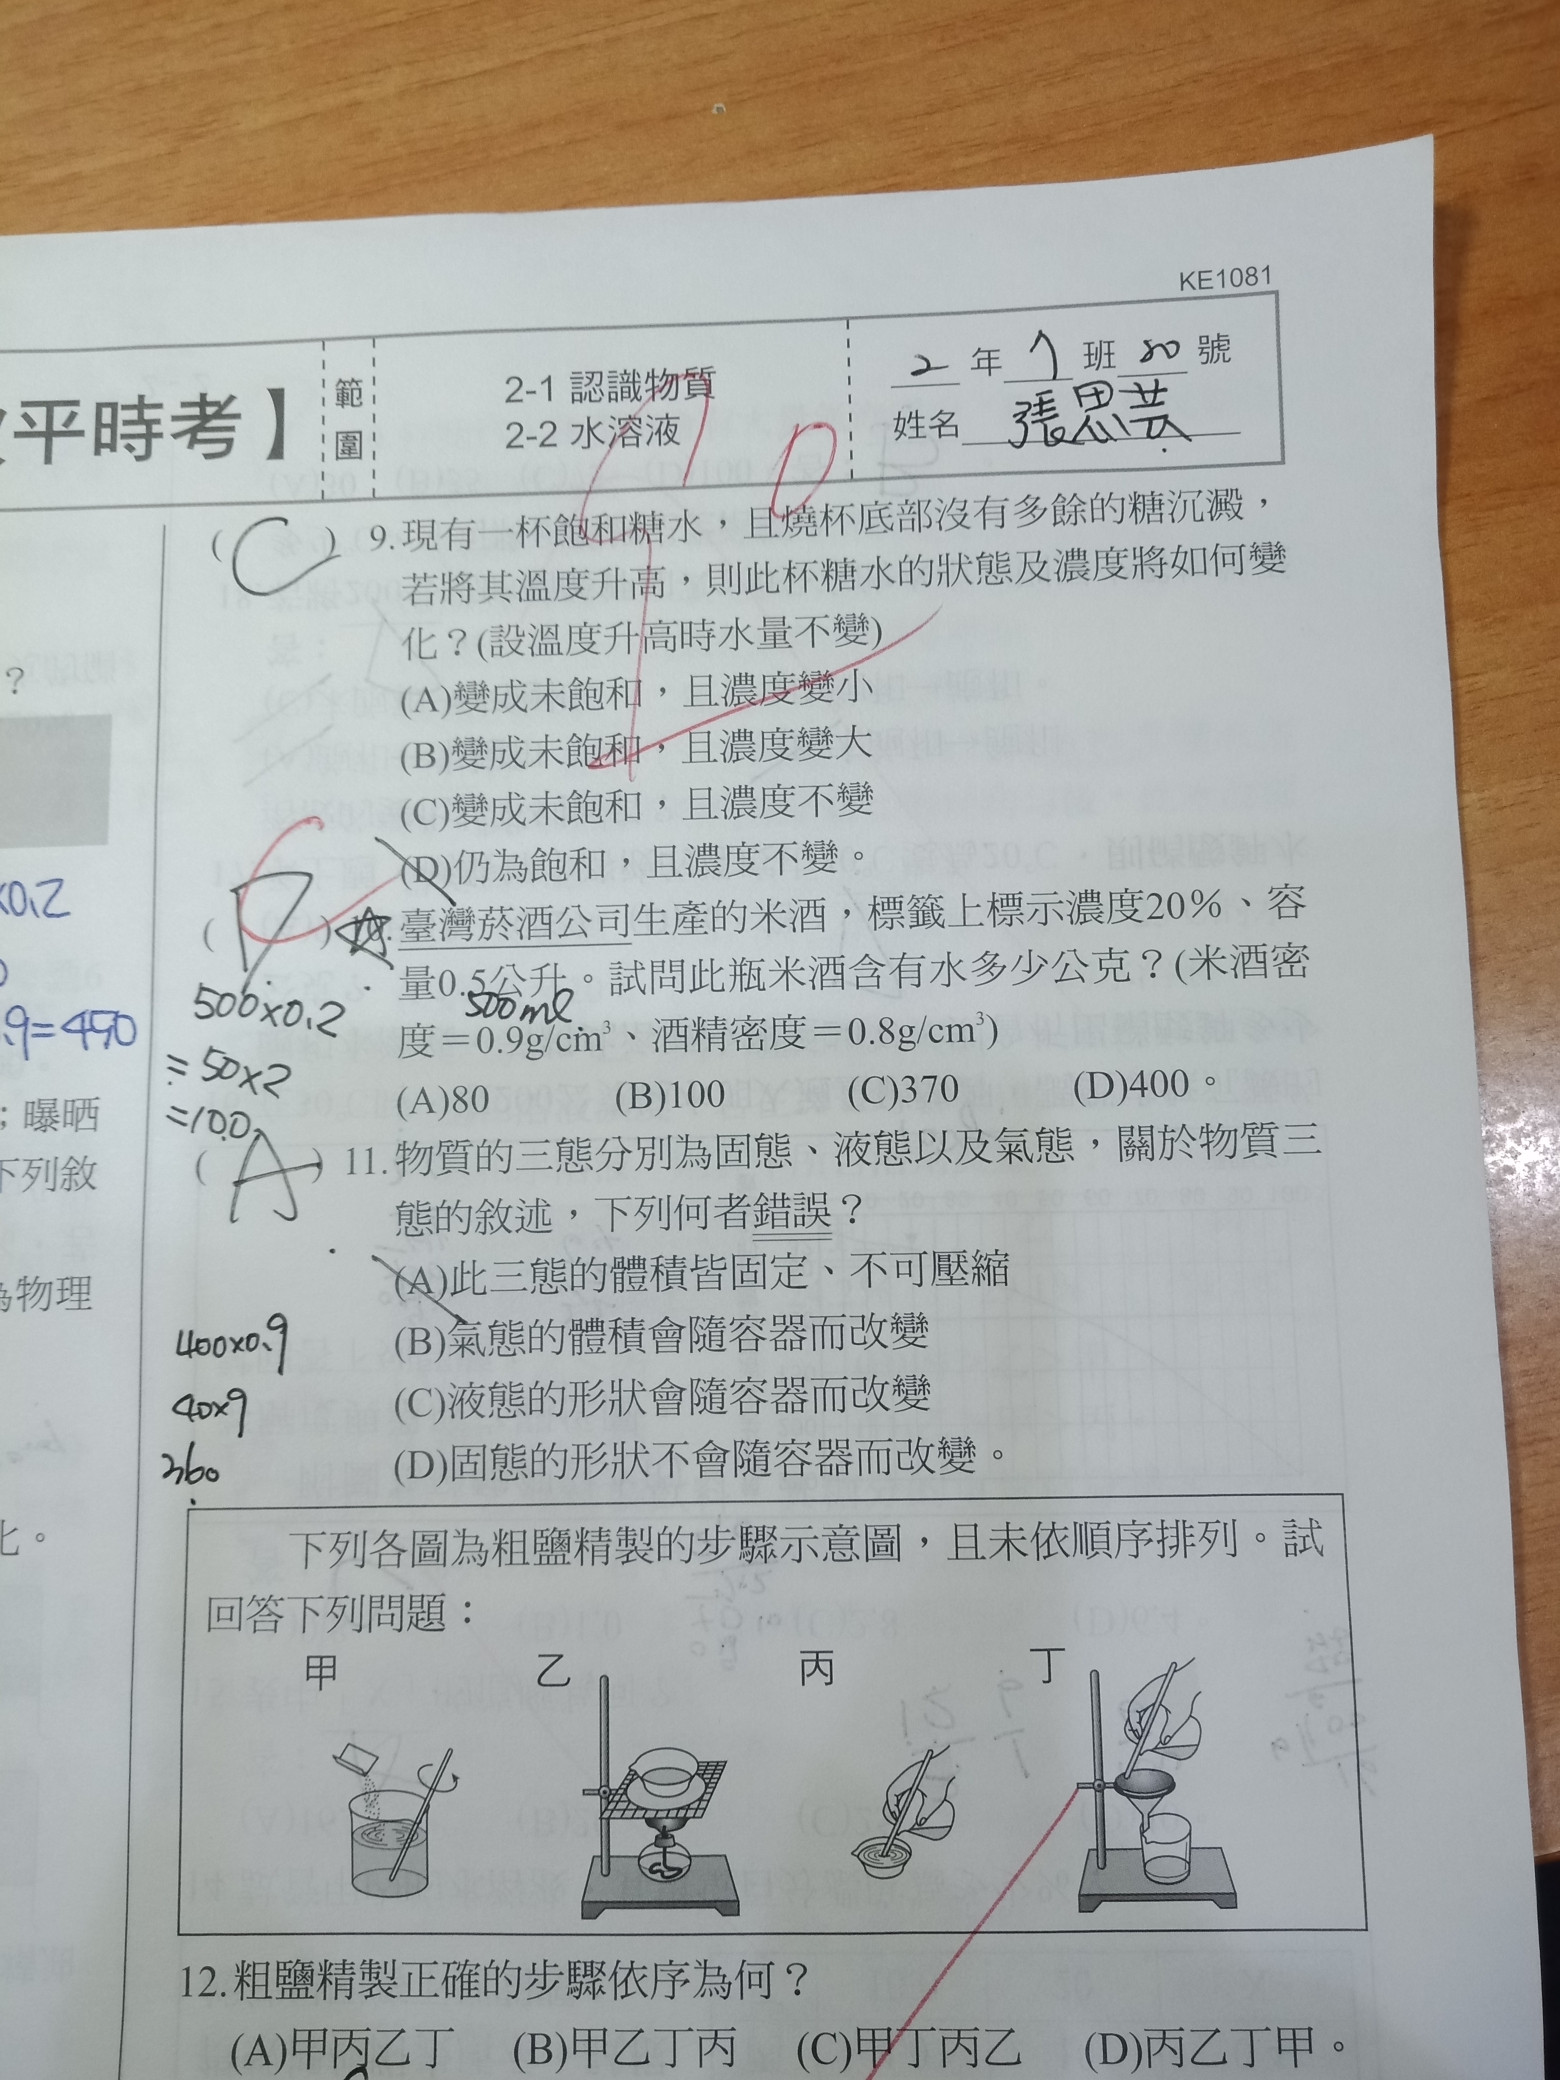 KE1081
平時考】
範圍
2-1 認識物質
2-2 水溶液
2 年 7 班 20 號
姓名 張思芸
70
( C ) 9.現有一杯飽和糖水，且燒杯底部沒有多餘的糖沉澱，
若將其溫度升高，則此杯糖水的狀態及濃度將如何變
化？(設溫度升高時水量不變)
(A)變成未飽和，且濃度變小
(B)變成未飽和，且濃度變大
(C)變成未飽和，且濃度不變
(D)仍為飽和，且濃度不變。
C
( D ) 10.臺灣菸酒公司生產的米酒，標籤上標示濃度20%、容
量0.5公升。試問此瓶米酒含有水多少公克？(米酒密
500ml
度＝0.9g/cm³、酒精密度＝0.8g/cm³)
(A)80 (B)100 (C)370 (D)400。
500×0.2
=50×2
=100
( A ) 11.物質的三態分別為固態、液態以及氣態，關於物質三
態的敘述，下列何者錯誤？
(A)此三態的體積皆固定、不可壓縮
(B)氣態的體積會隨容器而改變
(C)液態的形狀會隨容器而改變
(D)固態的形狀不會隨容器而改變。
400×0.9
40×9
360
下列各圖為粗鹽精製的步驟示意圖，且未依順序排列。試
回答下列問題：
甲 乙 丙 丁
12.粗鹽精製正確的步驟依序為何？
(A)甲丙乙丁 (B)甲乙丁丙 (C)甲丁丙乙 (D)丙乙丁甲。
？
×0.2
.9=450
；曝晒
下列敘
為物理
化。